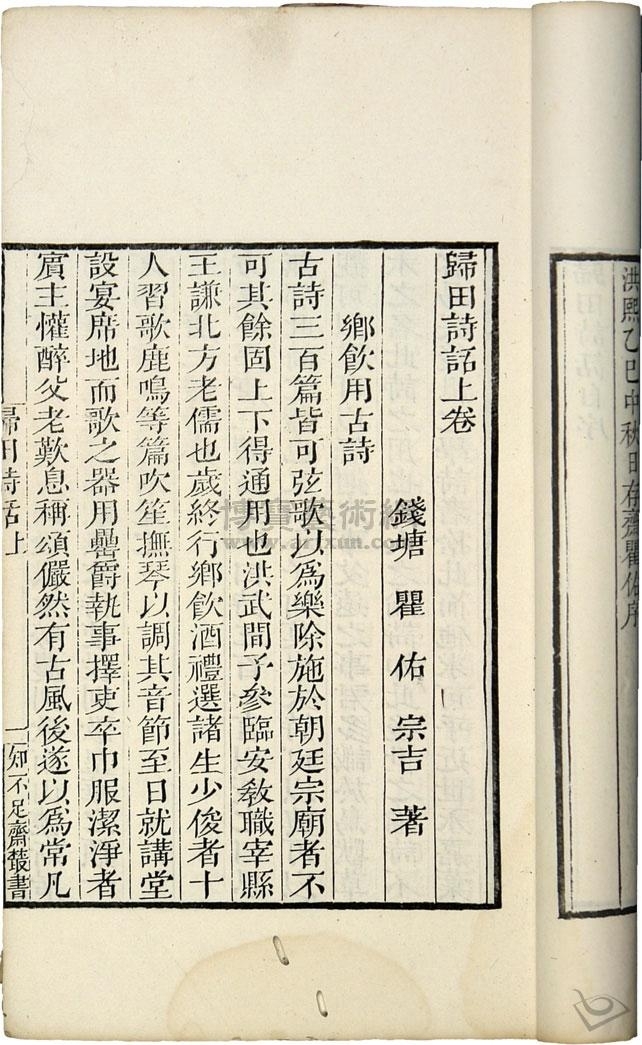 洪熙乙巳中秋日存齋瞿佑序
歸田詩話上卷
錢塘 瞿 佑 宗吉 著
鄉飲用古詩
古詩三百篇皆可弦歌以爲樂除施於朝廷宗廟者不
可其餘固上下得通用也洪武間予參臨安敎職宰縣
王謙北方老儒也歲終行鄉飲酒禮選諸生少俊者十
人習歌鹿鳴等篇吹笙撫琴以調其音節至日就講堂
設宴席地而歌之器用罍爵執事擇吏卒巾服潔淨者
賓主懽醉父老歎息稱頌儼然有古風後遂以爲常凡
歸田詩話上
一
知不足齋叢書
博寶藝術網
www.artxun.com